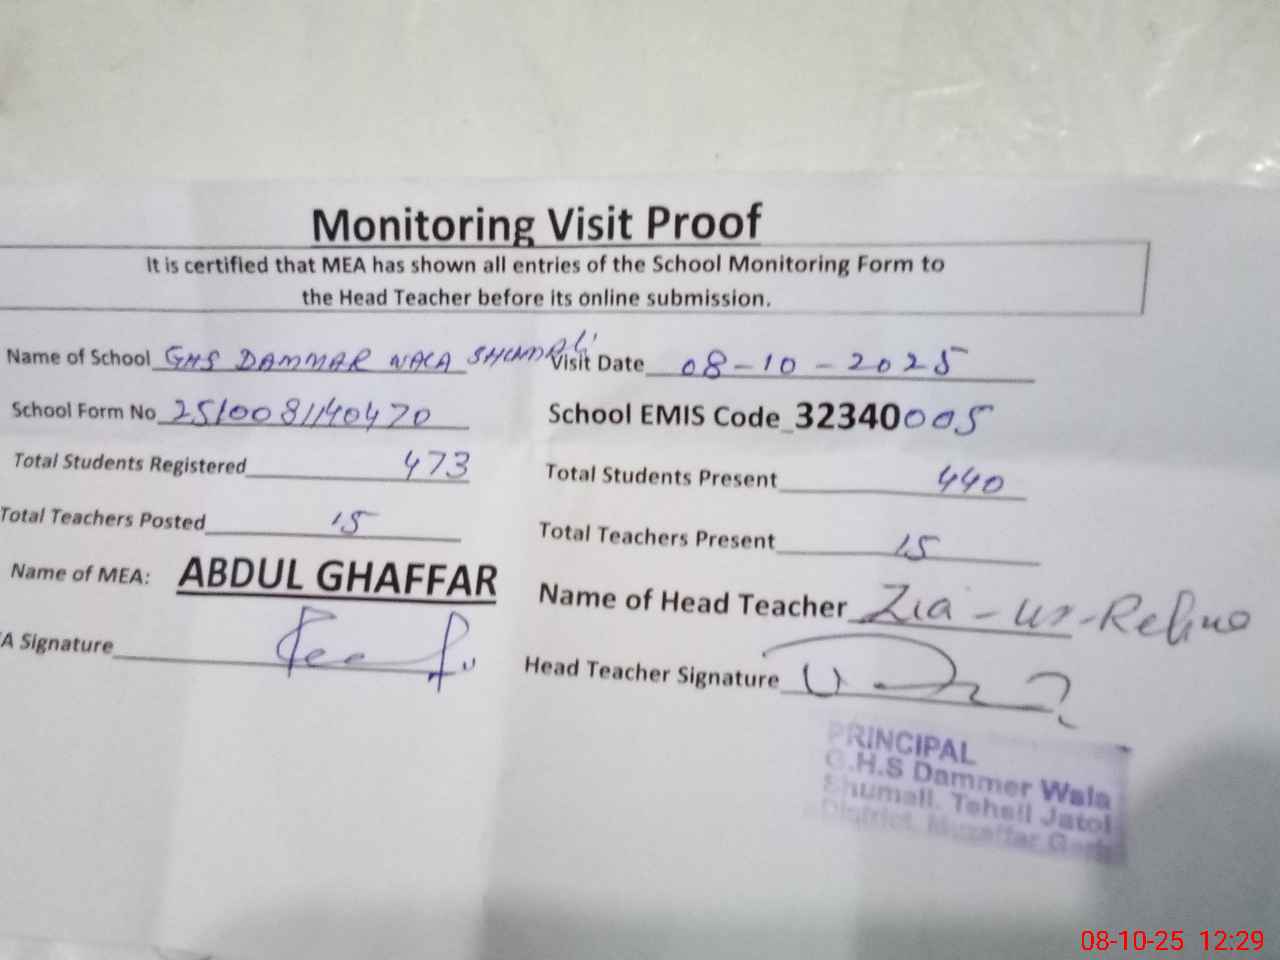 Monitoring Visit Proof
It is certified that MEA has shown all entries of the School Monitoring Form to
the Head Teacher before its online submission.
Name of School GHS DAMMAR WALA SHUMALI Visit Date 08-10-2025
School Form No 2510081140470 School EMIS Code 32340005
Total Students Registered 473 Total Students Present 440
Total Teachers Posted 15 Total Teachers Present 15
Name of MEA: ABDUL GHAFFAR Name of Head Teacher Zia-ur-Rehman
A Signature Head Teacher Signature
PRINCIPAL
G.H.S Dammer Wala
Shumali, Tehsil Jatoi
District, Muzaffar Garh
08-10-25 12:29